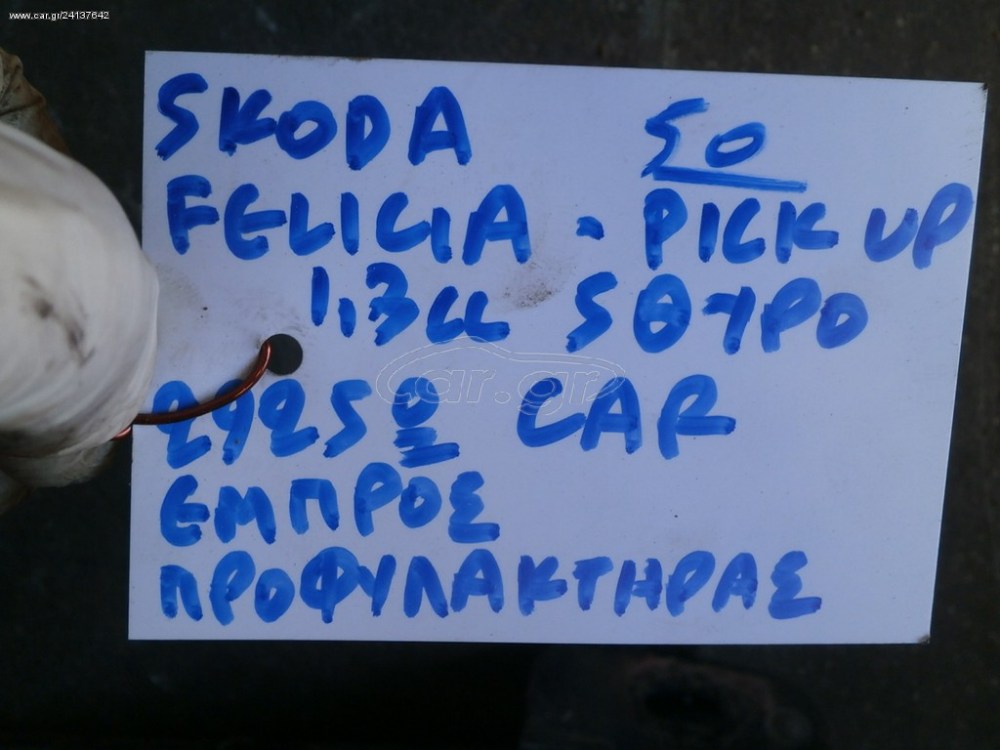 www.car.gr/24137642
SKODA 50
FELICIA - PICK UP
1,3cc 5ΘΥΡΟ
29250 CAR
car.gr
ΕΜΠΡΟΣ
ΠΡΟΦΥΛΑΚΤΗΡΑΣ